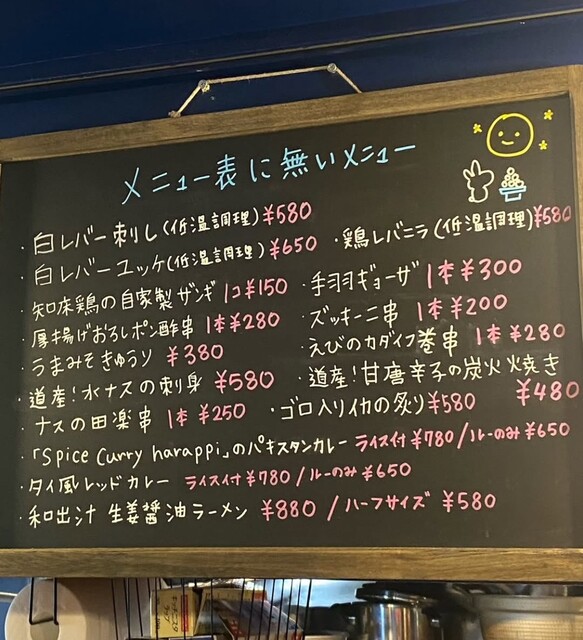 メニュー表に無いメニュー
・白レバー刺し(低温調理)¥580
・白レバーユッケ(低温調理)¥650
・鶏レバニラ(低温調理)¥580
・知床鶏の自家製ザンギ 1コ¥150
・手羽ギョーザ 1本¥300
・厚揚げおろしポン酢串 1本¥280
・ズッキーニ串 1本¥200
・うまみそきゅうり ¥380
・えびのカダイフ巻串 1本¥280
・道産!水ナスの刺身 ¥580
・道産!甘唐辛子の炭火焼き ¥480
・ナスの田楽串 1本¥250
・ゴロ入りイカの炙り¥580
・「Spice Curry harappi」のパキスタンカレー ライス付¥780/ルーのみ¥650
・タイ風レッドカレー ライス付¥780/ルーのみ¥650
・和出汁 生姜醤油ラーメン ¥880/ハーフサイズ ¥580